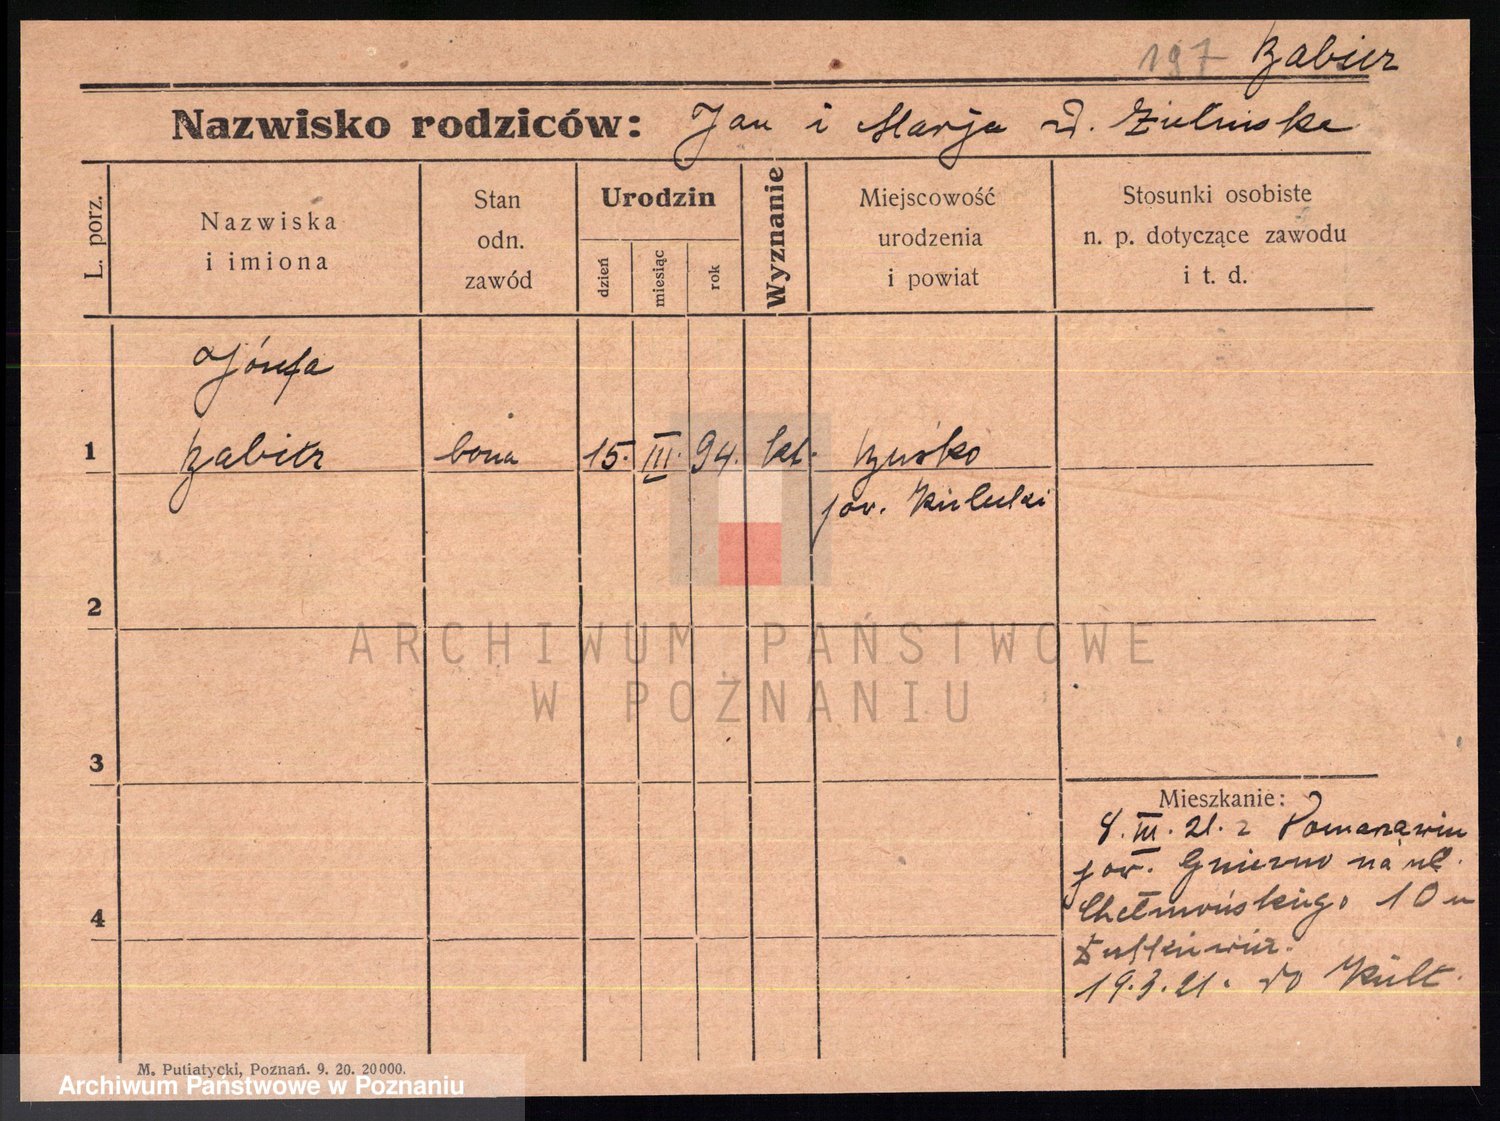 197 Zabier
Nazwisko rodziców: Jan i Marja d. Zielińska
L. porz.
Nazwiska
i imiona
Stan
odn.
zawód
Urodzin
dzień
miesiąc
rok
Wyznanie
Miejscowość
urodzenia
i powiat
Stosunki osobiste
n. p. dotyczące zawodu
i t. d.
Józefa
1 Zabier bona 15. III. 94. kt.
pow.
2
ARCHIWUM PAŃSTWOWE
W POZNANIU
3
Mieszkanie:
8. III. 21. z
pow. Gniezno na ul.
Chełmońskiego 10 u
19.3.21. do
4
M. Putiatycki, Poznań. 9. 20. 20000.
Archiwum Państwowe w Poznaniu